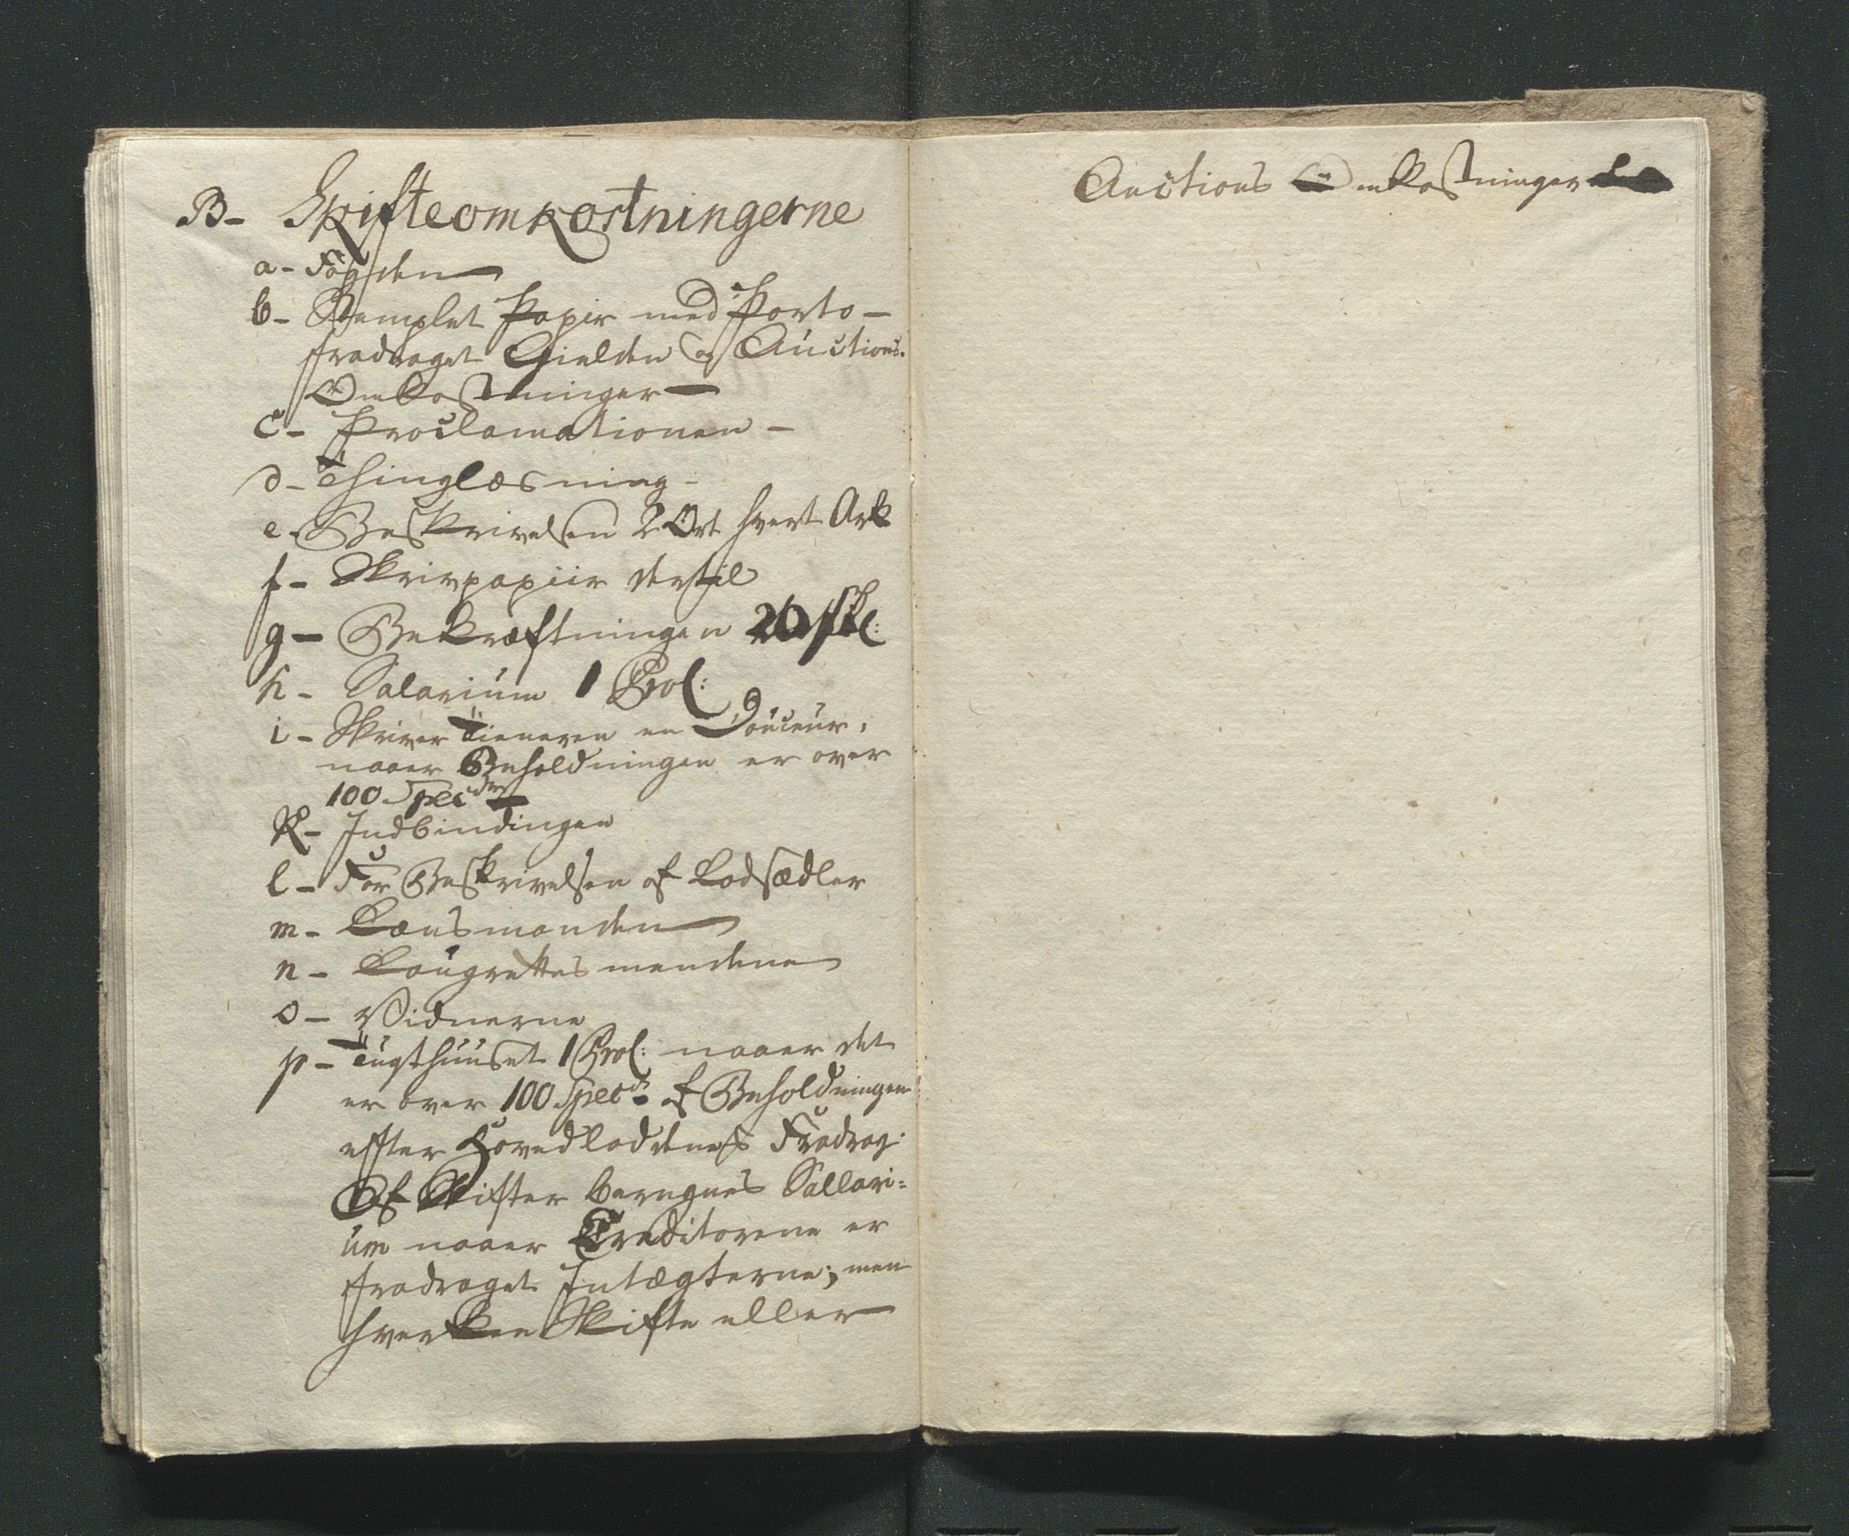 B- Skifteomkostningerne
a- Fogden
b- Stemplet Papir med Porto-
fradraget Gielden og Auctions-
Omkostninger
c- Proclamationen-
d- Thinglæsning-
e- Beskrivelsen 2 Ort hvert Ark
f- Skrivpapiir dertil
g- Bekræftningen 26 skl:
h- Salarium 1 Proc:
i- Skriver Tieneren en Douceur,
naaer Beholdningen er over
100 Specdr
K- Indbindingen
l- For Beskrivelsen af Lodsædler
m- Lænsmanden
n- Laugrettesmændene
o- Vidnerne
p- Tugthuuset 1 Proc: naaer det
er over 100 Specd. af Beholdningen
efter Hovedloddens Fradrag.
Af Skifter beregnes Sallari-
um naaer Creditorene er
fradraget Intægterne; men
hverken Skifte eller
Auctions Omkostninger